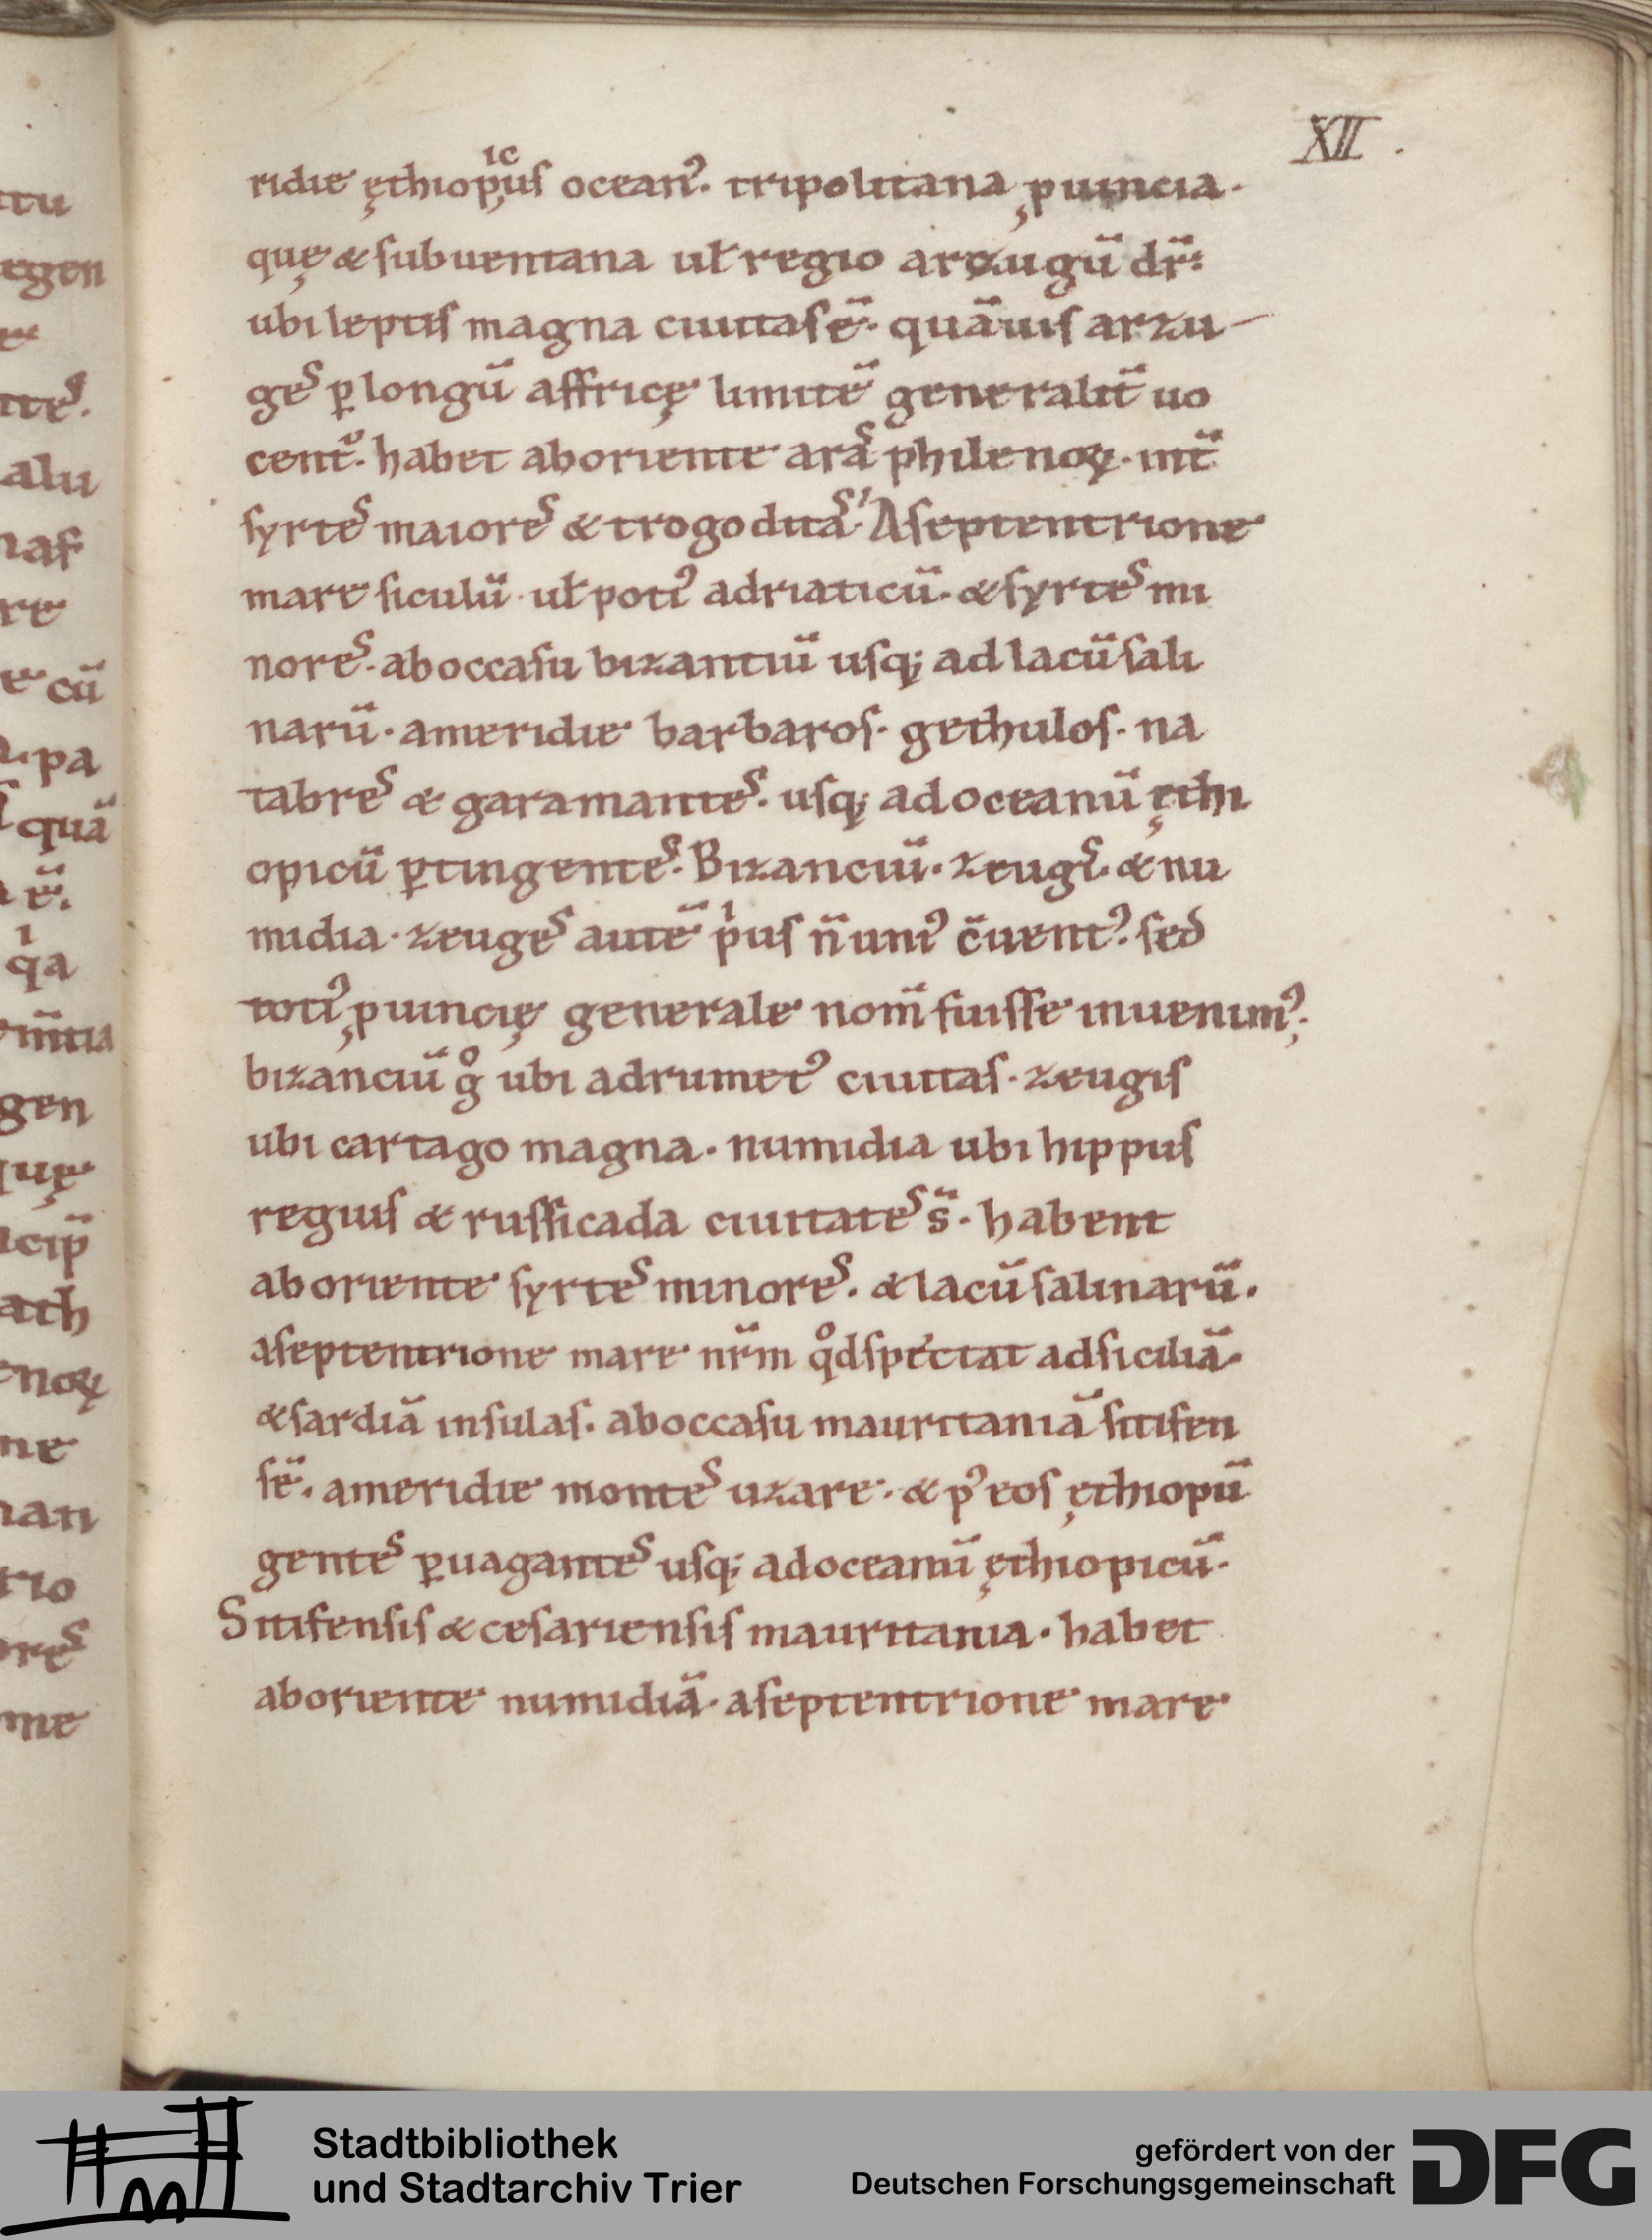 XII.
ridie ęthiop̣icus ocean᷒. tripolitana ꝓuincia.
quę & subuentana uł regio arzugū dr̄.
ubi leptis magna ciuitas ē. quāuis arzu
ges ꝑ longū affricę limitē generalit̄ uo
cent᷑. habet ab oriente aras philenoꝝ. int̄
syrtes maiores & trogoditas. A septentrione
mare siculū. uł poti᷒ adriaticū. & syrtes mi
nores. ab occasu bizantiū usq; ad lacū sali
narū. a meridie barbaros. gethulos. na
tabres & garamantes. usq; ad oceanū ęthi
opicū ꝑtingentes. Bizanciū. zeugis. & nu
midia. zeuges autē pⁱus n̄ uni᷒ c̄uent᷒. sed
toti᷒ ꝓuincię generale nom̄ fuisse inuenim᷒.
bizanciū gͦ ubi adrumet᷒ ciuitas. zeugis
ubi cartago magna. numidia ubi hippus
regius & russicada ciuitates s̄. habent
ab oriente syrtes minores. & lacū salinarū.
a septentrione mare nr̄m qͦd spectat ad siciliā
& sardiā insulas. ab occasu mauritaniā sitifen
sē. a meridie montes uzare. & p᷒ eos ęthiopū
gentes ꝑuagantes usq; ad oceanū ęthiopicū.
Sitifensis & cesariensis mauritania. habet
ab oriente numidiā. a septentrione mare
tu
egen
e
ites.
alii
nas
re
e cū
a. pa
quā
ē.
qⁱa
m̄tia
gen
quę
cip̄
ath
noꝝ
ne
nan
rio
ores
me
Stadtbibliothek
und Stadtarchiv Trier
gefördert von der
Deutschen Forschungsgemeinschaft
DFG